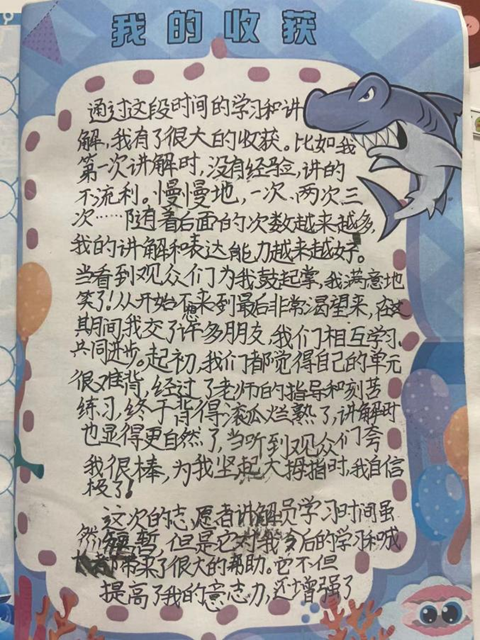 我的收获
通过这段时间的学习和讲
解，我有了很大的收获。比如我
第一次讲解时，没有经验，讲的
不流利。慢慢地，一次、两次三
次……随着后面的次数越来越多，
我的讲解和表达能力越来越好。
当看到观众们为我鼓起掌，我满意地
笑了！从开始不想来到最后非常渴望来，在这
其期间，我交了许多朋友，我们相互学习、
共同进步。起初，我们都觉得自己的单元
很难背，经过了老师的指导和刻苦
练习，终于背得滚瓜烂熟了，讲解时
也显得更自然了，当听到观众们夸
我很棒，为我竖起大拇指时，我自信
极了！
这次的志愿者讲解员学习时间虽
然短暂，但是它对我今后的学习和成
带来了很大的帮助。它不但
提高了我的意志力，还增强了